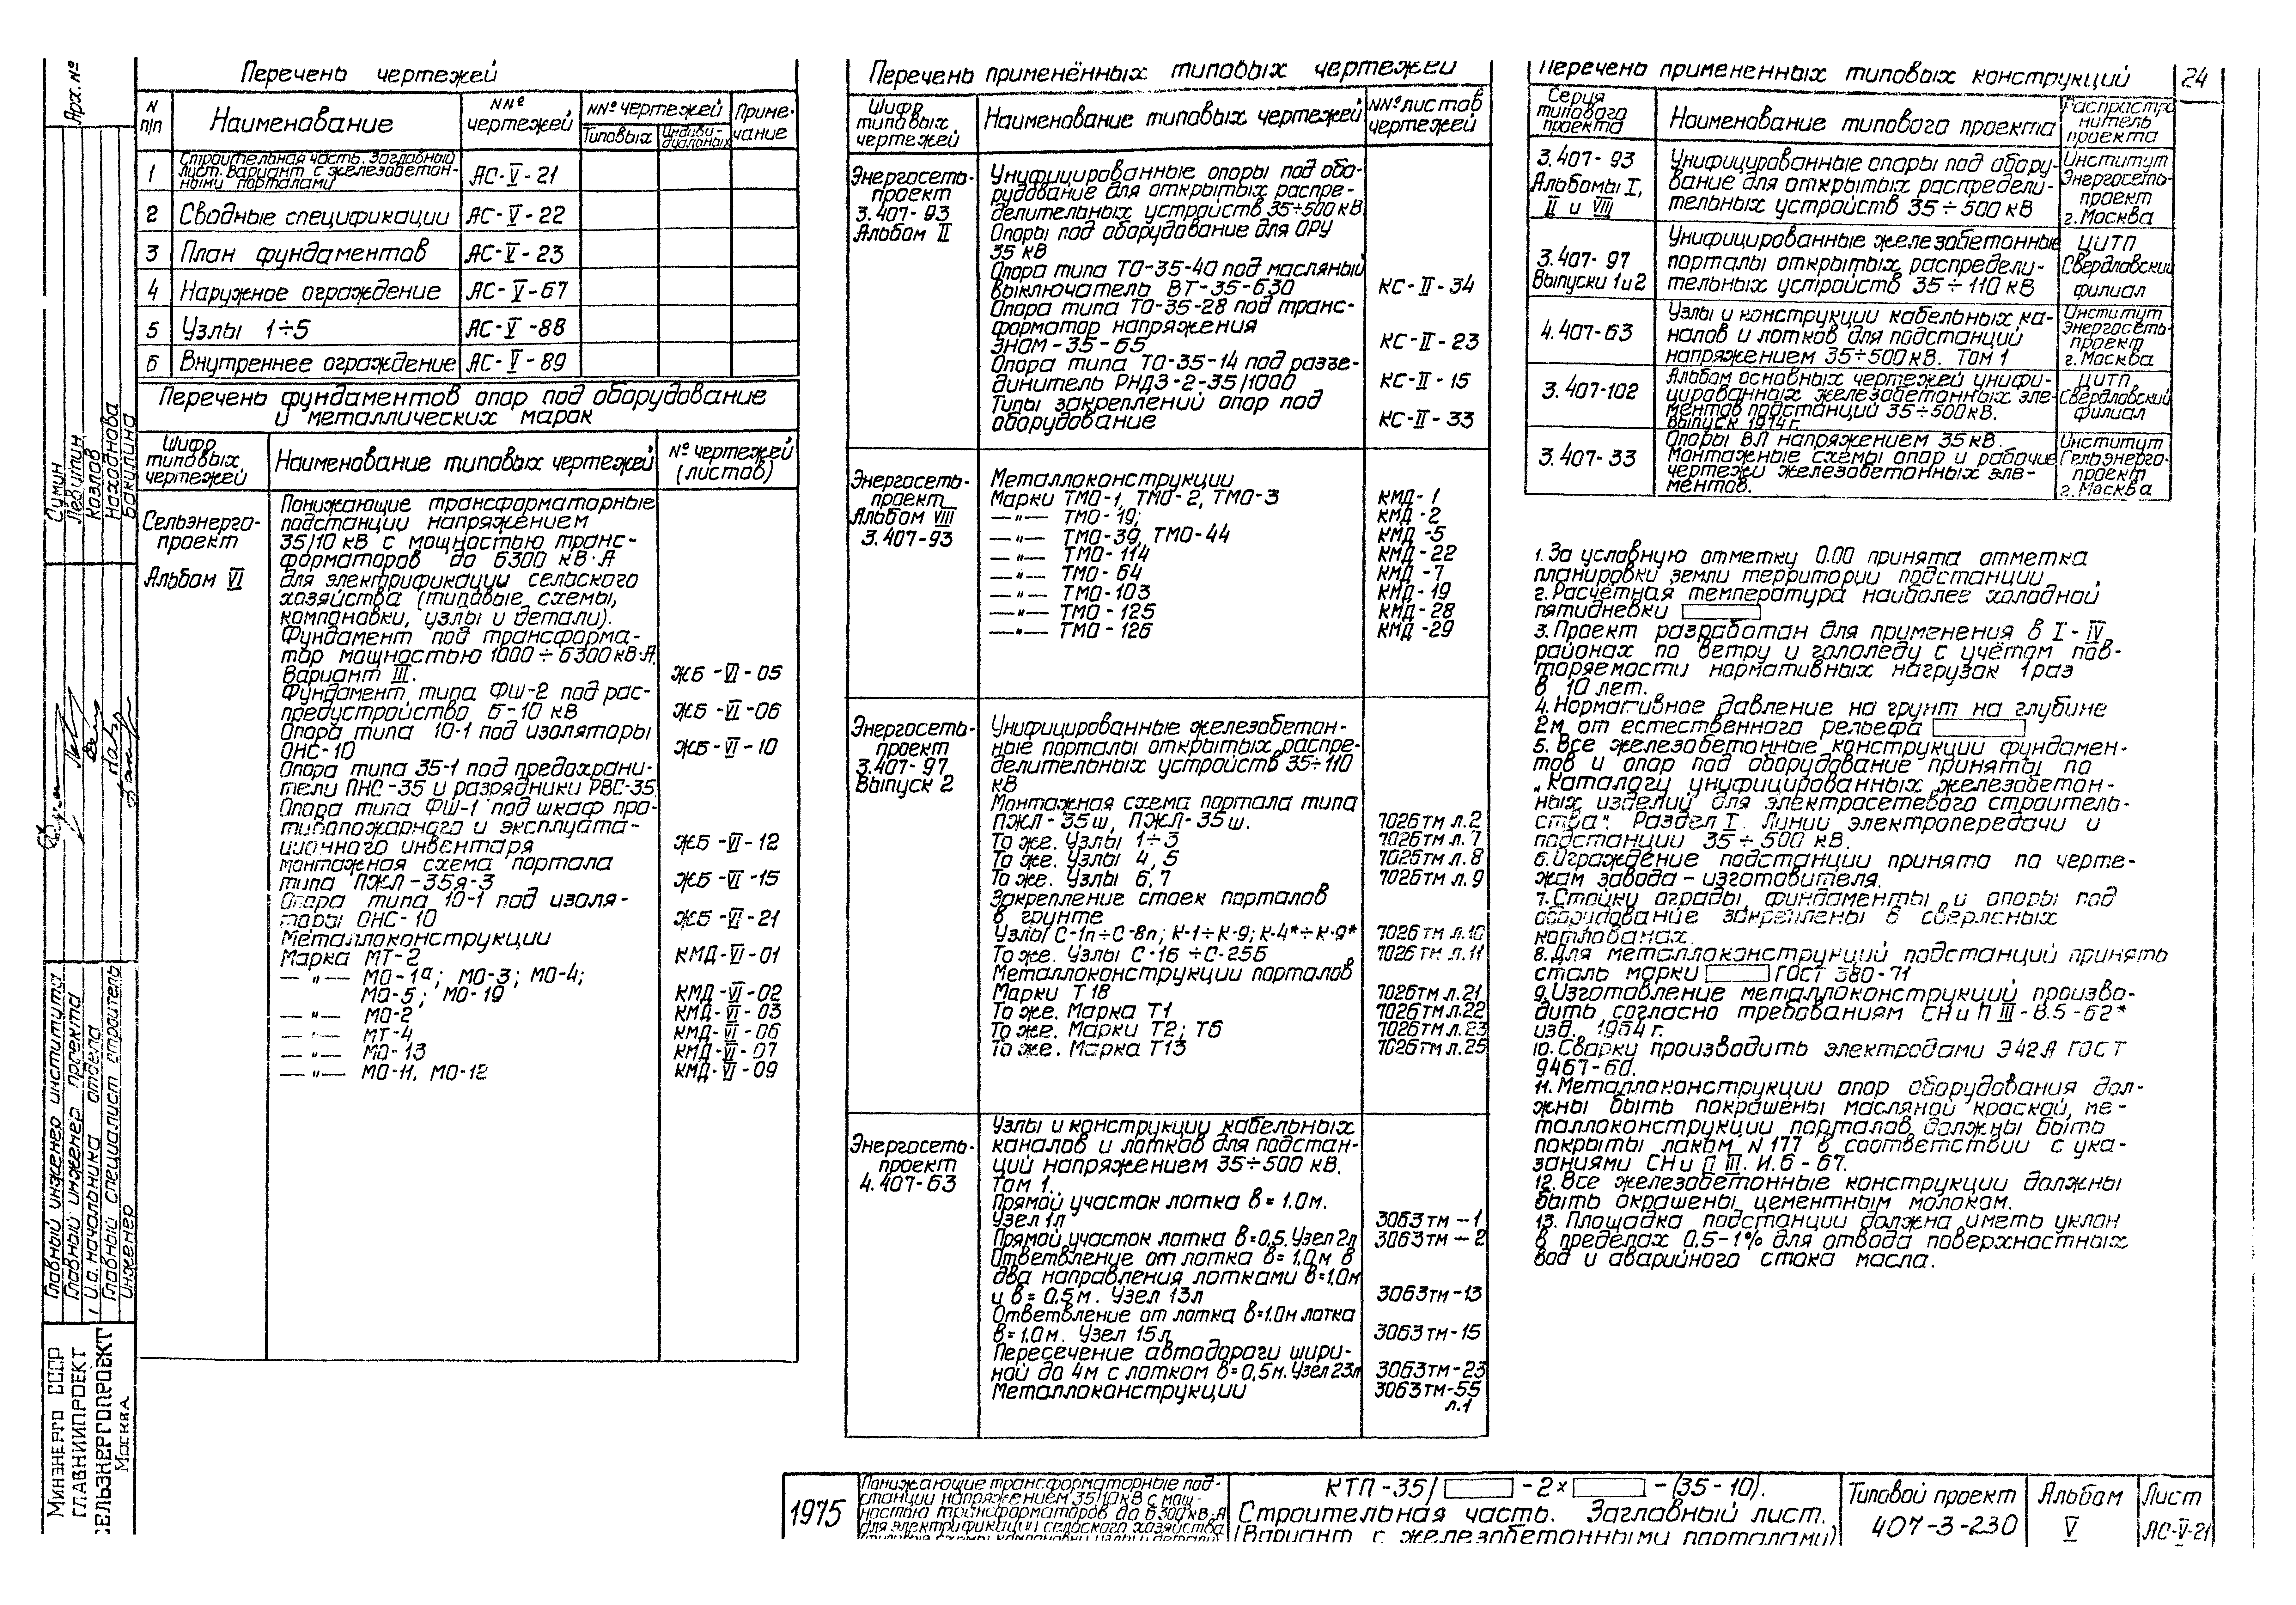 Перечень чертежей
N п/п
Наименование
NNº чертежей
NNº чертежей
Типовых
Индиви-
дуальных
Приме-
чание
1
Строительная часть. Заглавный
лист. Вариант с железобетон-
ными порталами
АС-V-21
2 Сводные спецификации АС-V-22
3 План фундаментов АС-V-23
4 Наружное ограждение АС-V-67
5 Узлы 1÷5 АС-V-88
6 Внутреннее ограждение АС-V-89
Перечень фундаментов опор под оборудование
и металлических марок
Шифр
типовых
чертежей
Наименование типовых чертежей
Nº чертежей
(листов)
Сельэнерго-
проект
Альбом VI
Понижающие трансформаторные
подстанции напряжением
35/10 кВ с мощностью транс-
форматоров до 6300 кВ·А
для электрификации сельского
хозяйства (типовые схемы,
компоновки, узлы и детали).
Фундамент под трансформа-
тор мощностью 1000÷6300 кВ·А.
Вариант III. ЖБ-VI-05
Фундамент типа ФШ-2 под рас-
предустройство 6-10 кВ ЖБ-VI-06
Опора типа 10-1 под изоляторы
ОНС-10 ЖБ-VI-10
Опора типа 35-1 под предохрани-
тели ПНС-35 и разрядники РВС-35.
Опора типа ФШ-1 под шкаф про-
тивопожарного и эксплуата-
ционного инвентаря ЖБ-VI-12
Монтажная схема портала
типа ПЖЛ-35я-3 ЖБ-VI-15
Опора типа 10-1 под изоля-
торы ОНС-10 ЖБ-VI-21
Металлоконструкции
Марка МТ-2 КМД-VI-01
—"— МО-1а; МО-3; МО-4;
МО-5; МО-19 КМД-VI-02
—"— МО-2 КМД-VI-03
—"— МТ-4 КМД-VI-06
—"— МО-13 КМД-VI-07
—"— МО-11, МО-12 КМД-VI-09
Перечень применённых типовых чертежей
Шифр
типовых
чертежей
Наименование типовых чертежей
NNº листов
чертежей
Энергосеть-
проект
3.407-93
Альбом II
Унифицированные опоры под обо-
рудование для открытых распре-
делительных устройств 35÷500 кВ.
Опоры под оборудование для ОРУ
35 кВ
Опора типа ТО-35-40 под масляный
выключатель ВТ-35-630 КС-II-34
Опора типа ТО-35-28 под транс-
форматор напряжения
ЗНОМ-35-65 КС-II-23
Опора типа ТО-35-14 под разъе-
динитель РНДЗ-2-35/1000 КС-II-15
Типы закреплений опор под
оборудование КС-II-33
Энергосеть-
проект
Альбом VIII
3.407-93
Металлоконструкции
Марки ТМО-1, ТМО-2, ТМО-3 КМД-1
—"— ТМО-19; КМД-2
—"— ТМО-39, ТМО-44 КМД-5
—"— ТМО-114 КМД-22
—"— ТМО-64 КМД-7
—"— ТМО-103 КМД-19
—"— ТМО-125 КМД-28
—"— ТМО-126 КМД-29
Энергосеть-
проект
3.407-97
Выпуск 2
Унифицированные железобетон-
ные порталы открытых распре-
делительных устройств 35÷110
кВ
Монтажная схема портала типа
ПЖЛ-35ш, ПЖЛ-35ш. 7026тм л.2
То же. Узлы 1÷3 7026тм л.7
То же. Узлы 4, 5 7026тм л.8
То же. Узлы 6, 7 7026тм л.9
Закрепление стоек порталов
в грунте
Узлы С-1п÷С-8п; К-1÷К-9; К-4*÷К-9* 7026тм л.10
То же. Узлы С-16÷С-25Б 7026тм л.11
Металлоконструкции порталов
Марки Т18 7026тм л.21
То же. Марка Т1 7026тм л.22
То же. Марки Т2; Т6 7026тм л.23
То же. Марка Т13 7026тм л.25
Энергосеть-
проект
4.407-63
Узлы и конструкции кабельных
каналов и лотков для подстан-
ций напряжением 35÷500 кВ.
Том 1.
Прямой участок лотка в=1.0м.
Узел 1л 3063тм-1
Прямой участок лотка в=0,5. Узел 2л 3063тм-2
Ответвление от лотка в=1,0м в
два направления лотками в=1,0м
и в=0,5м. Узел 13л 3063тм-13
Ответвление от лотка в=1.0м лотка
в=1.0м. Узел 15л 3063тм-15
Пересечение автодороги шири-
ной до 4м с лотком в=0,5м. Узел 23л 3063тм-23
Металлоконструкции 3063тм-55
л.1
Перечень применённых типовых конструкций
24
Серия
типового
проекта
Наименование типового проекта
Распростра-
нитель
проекта
3.407-93
Альбомы I,
II и VIII
Унифицированные опоры под обору-
вание для открытых распредели-
тельных устройств 35÷500 кВ
Институт
Энергосеть-
проект
г. Москва
3.407-97
Выпуски 1и2
Унифицированные железобетонные
порталы открытых распредели-
тельных устройств 35÷110 кВ
ЦИТП
Свердловский
филиал
4.407-63
Узлы и конструкции кабельных ка-
налов и лотков для подстанций
напряжением 35÷500 кВ. Том 1
Институт
Энергосеть-
проект
г. Москва
3.407-102
Альбом основных чертежей унифи-
цированных железобетонных эле-
ментов подстанций 35÷500 кВ.
Выпуск 1974 г.
ЦИТП
Свердловский
филиал
3.407-33
Опоры ВЛ напряжением 35 кВ.
Монтажные схемы опор и рабочие
чертежи железобетонных эле-
ментов.
Институт
Сельэнерго-
проект
г. Москва
1. За условную отметку 0.00 принята отметка
планировки земли территории подстанции.
2. Расчётная температура наиболее холодной
пятидневки
3. Проект разработан для применения в I-IV
районах по ветру и гололеду с учётом пов-
торяемости нормативных нагрузок 1 раз
в 10 лет.
4. Нормативное давление на грунт на глубине
2м от естественного рельефа
5. Все железобетонные конструкции фундамен-
тов и опор под оборудование приняты по
„Каталогу унифицированных железобетон-
ных изделий для электросетевого строитель-
ства". Раздел I. Линии электропередачи и
подстанции 35÷500 кВ.
6. Ограждение подстанции принято по черте-
жам завода-изготовителя.
7. Стойки ограды, фундаменты и опоры под
оборудование закреплены в сверленых
котлованах.
8. Для металлоконструкций подстанций принять
сталь марки ГОСТ 380-71
9. Изготовление металлоконструкций произво-
дить согласно требованиям СНиП III-В.5-62*
изд. 1964 г.
10. Сварки производить электродами Э42А ГОСТ
9467-60.
11. Металлоконструкции опор оборудования дол-
жны быть покрашены масляной краской, ме-
таллоконструкции порталов должны быть
покрыты лаком N 177 в соответствии с ука-
заниями СНиП III. И.6-67.
12. Все железобетонные конструкции должны
быть окрашены цементным молоком.
13. Площадка подстанции должна иметь уклон
в пределах 0,5-1% для отвода поверхностных
вод и аварийного стока масла.
Арх. Nº
Сумин
Левитин
Козлов
Находнова
Бакулина
Главный инженер института
Главный инженер проекта
И.о. начальника отдела
Главный специалист строитель
Инженер
Минэнерго СССР
ГЛАВНИИПРОЕКТ
СЕЛЬЭНЕРГОПРОЕКТ
Москва
1975
Понижающие трансформаторные под-
станции напряжением 35/10 кВ с мощ-
ностью трансформаторов до 6300 кВ·А
для электрификации сельского хозяйства
(типовые схемы, компоновки, узлы и детали)
КТП-35/ -2× -(35-10).
Строительная часть. Заглавный лист.
(Вариант с железобетонными порталами)
Типовой проект
407-3-230
Альбом
V
Лист
АС-V-21